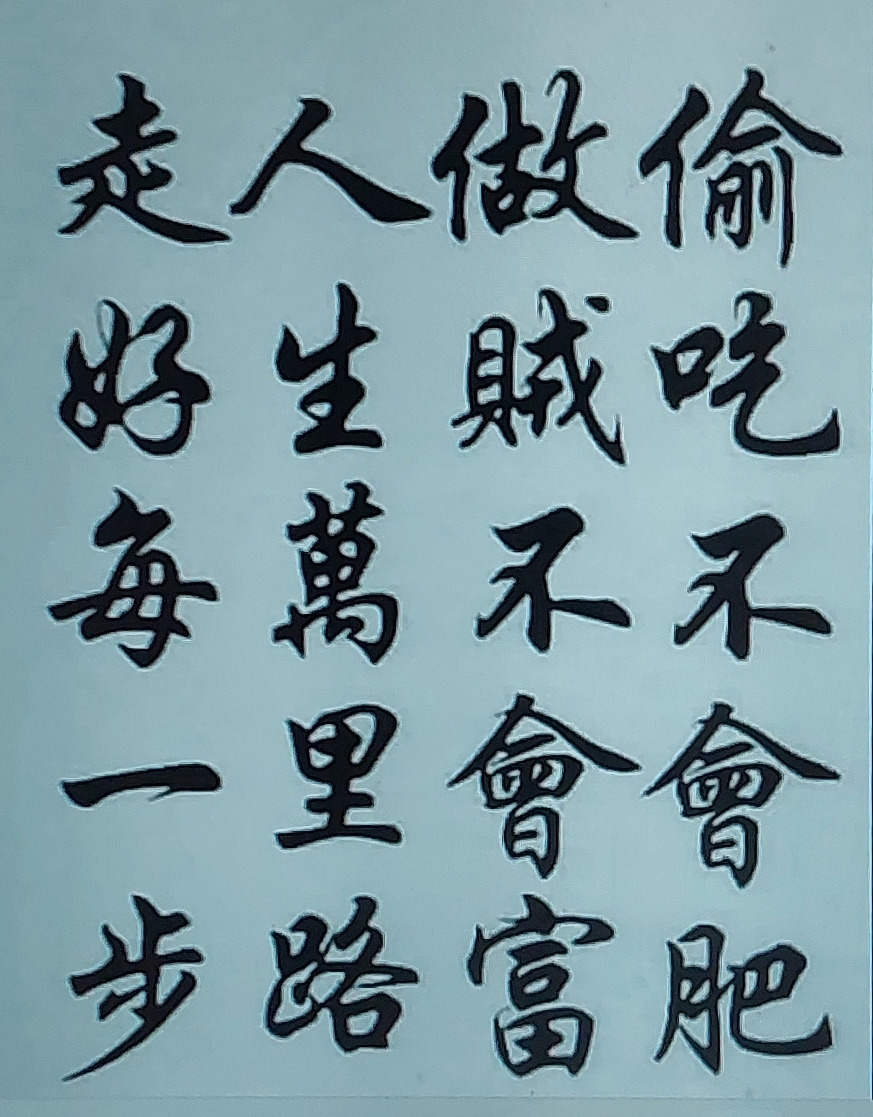 偷吃不會肥
做賊不會富
人生萬里路
走好每一步